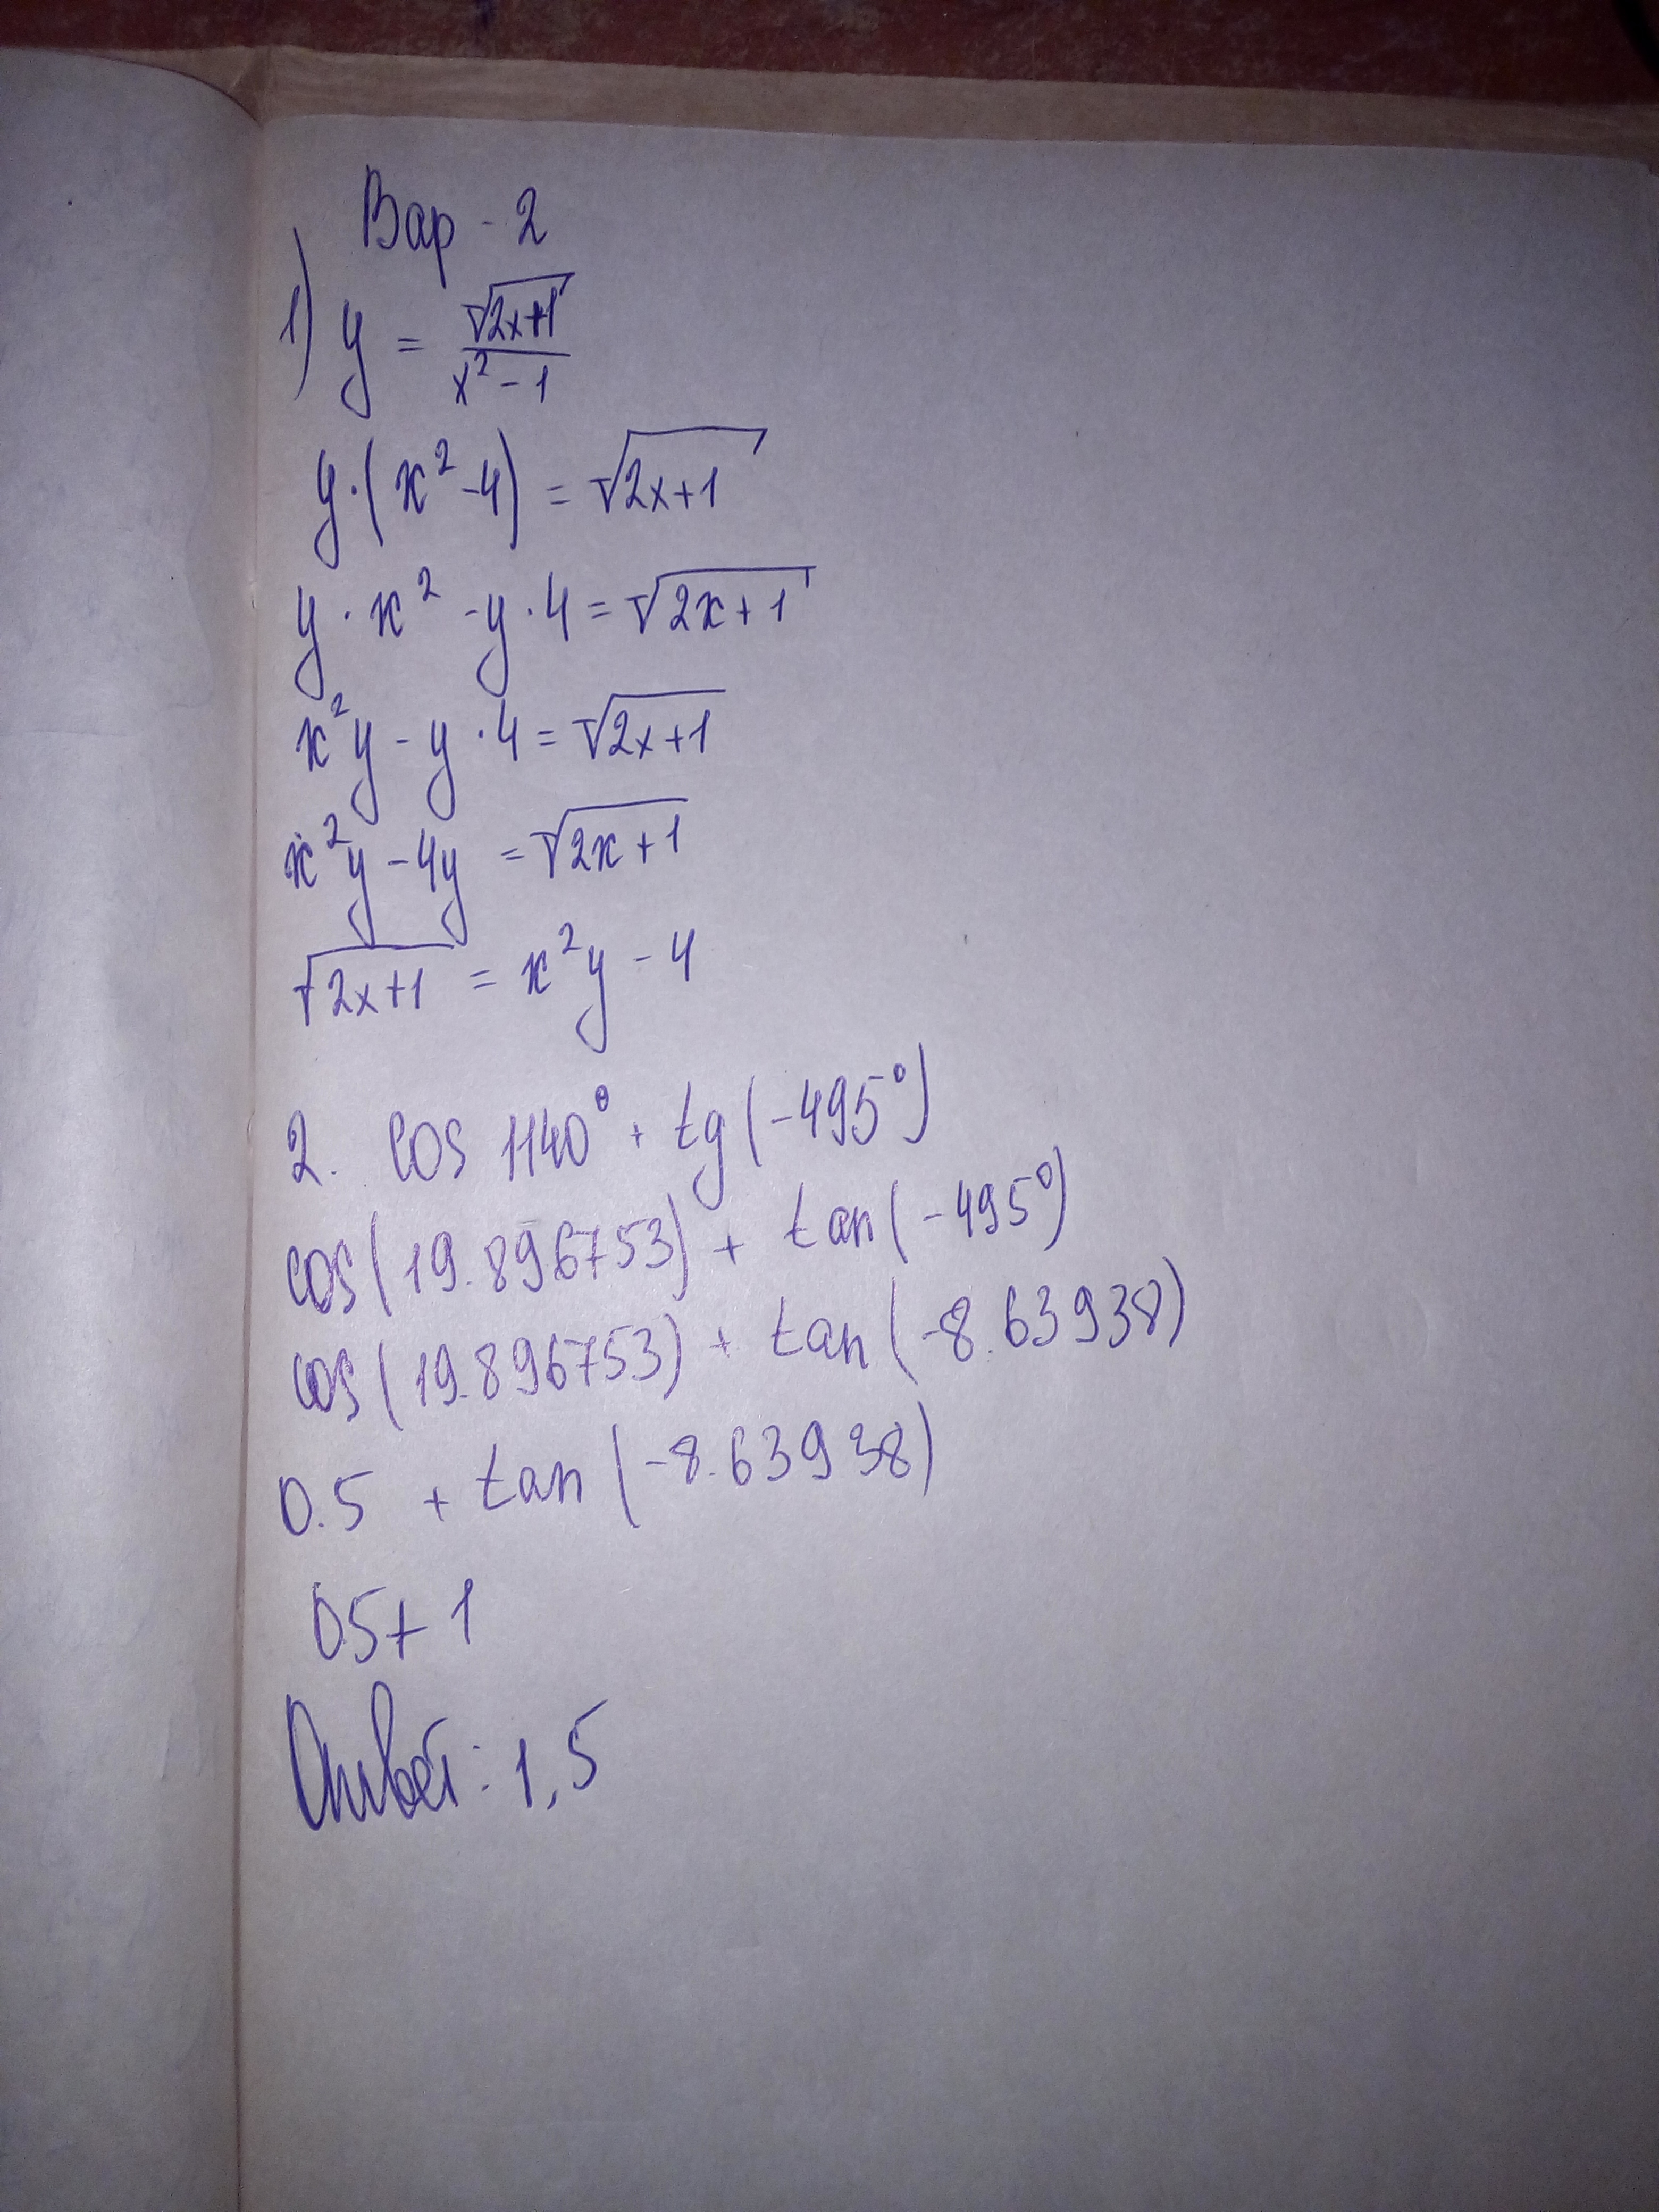 Вар - 2
1) y = √(2x+1) / (x² - 1)
y·(x² - 4) = √(2x+1)
y·x² - y·4 = √(2x+1)
x²y - y·4 = √(2x+1)
x²y - 4y = √(2x+1)
√(2x+1) = x²y - 4
2. cos 1140° + tg(-495°)
cos(19.896753) + tan(-495°)
cos(19.896753) + tan(-8.63938)
0.5 + tan(-8.63938)
05+1
Ответ: 1,5